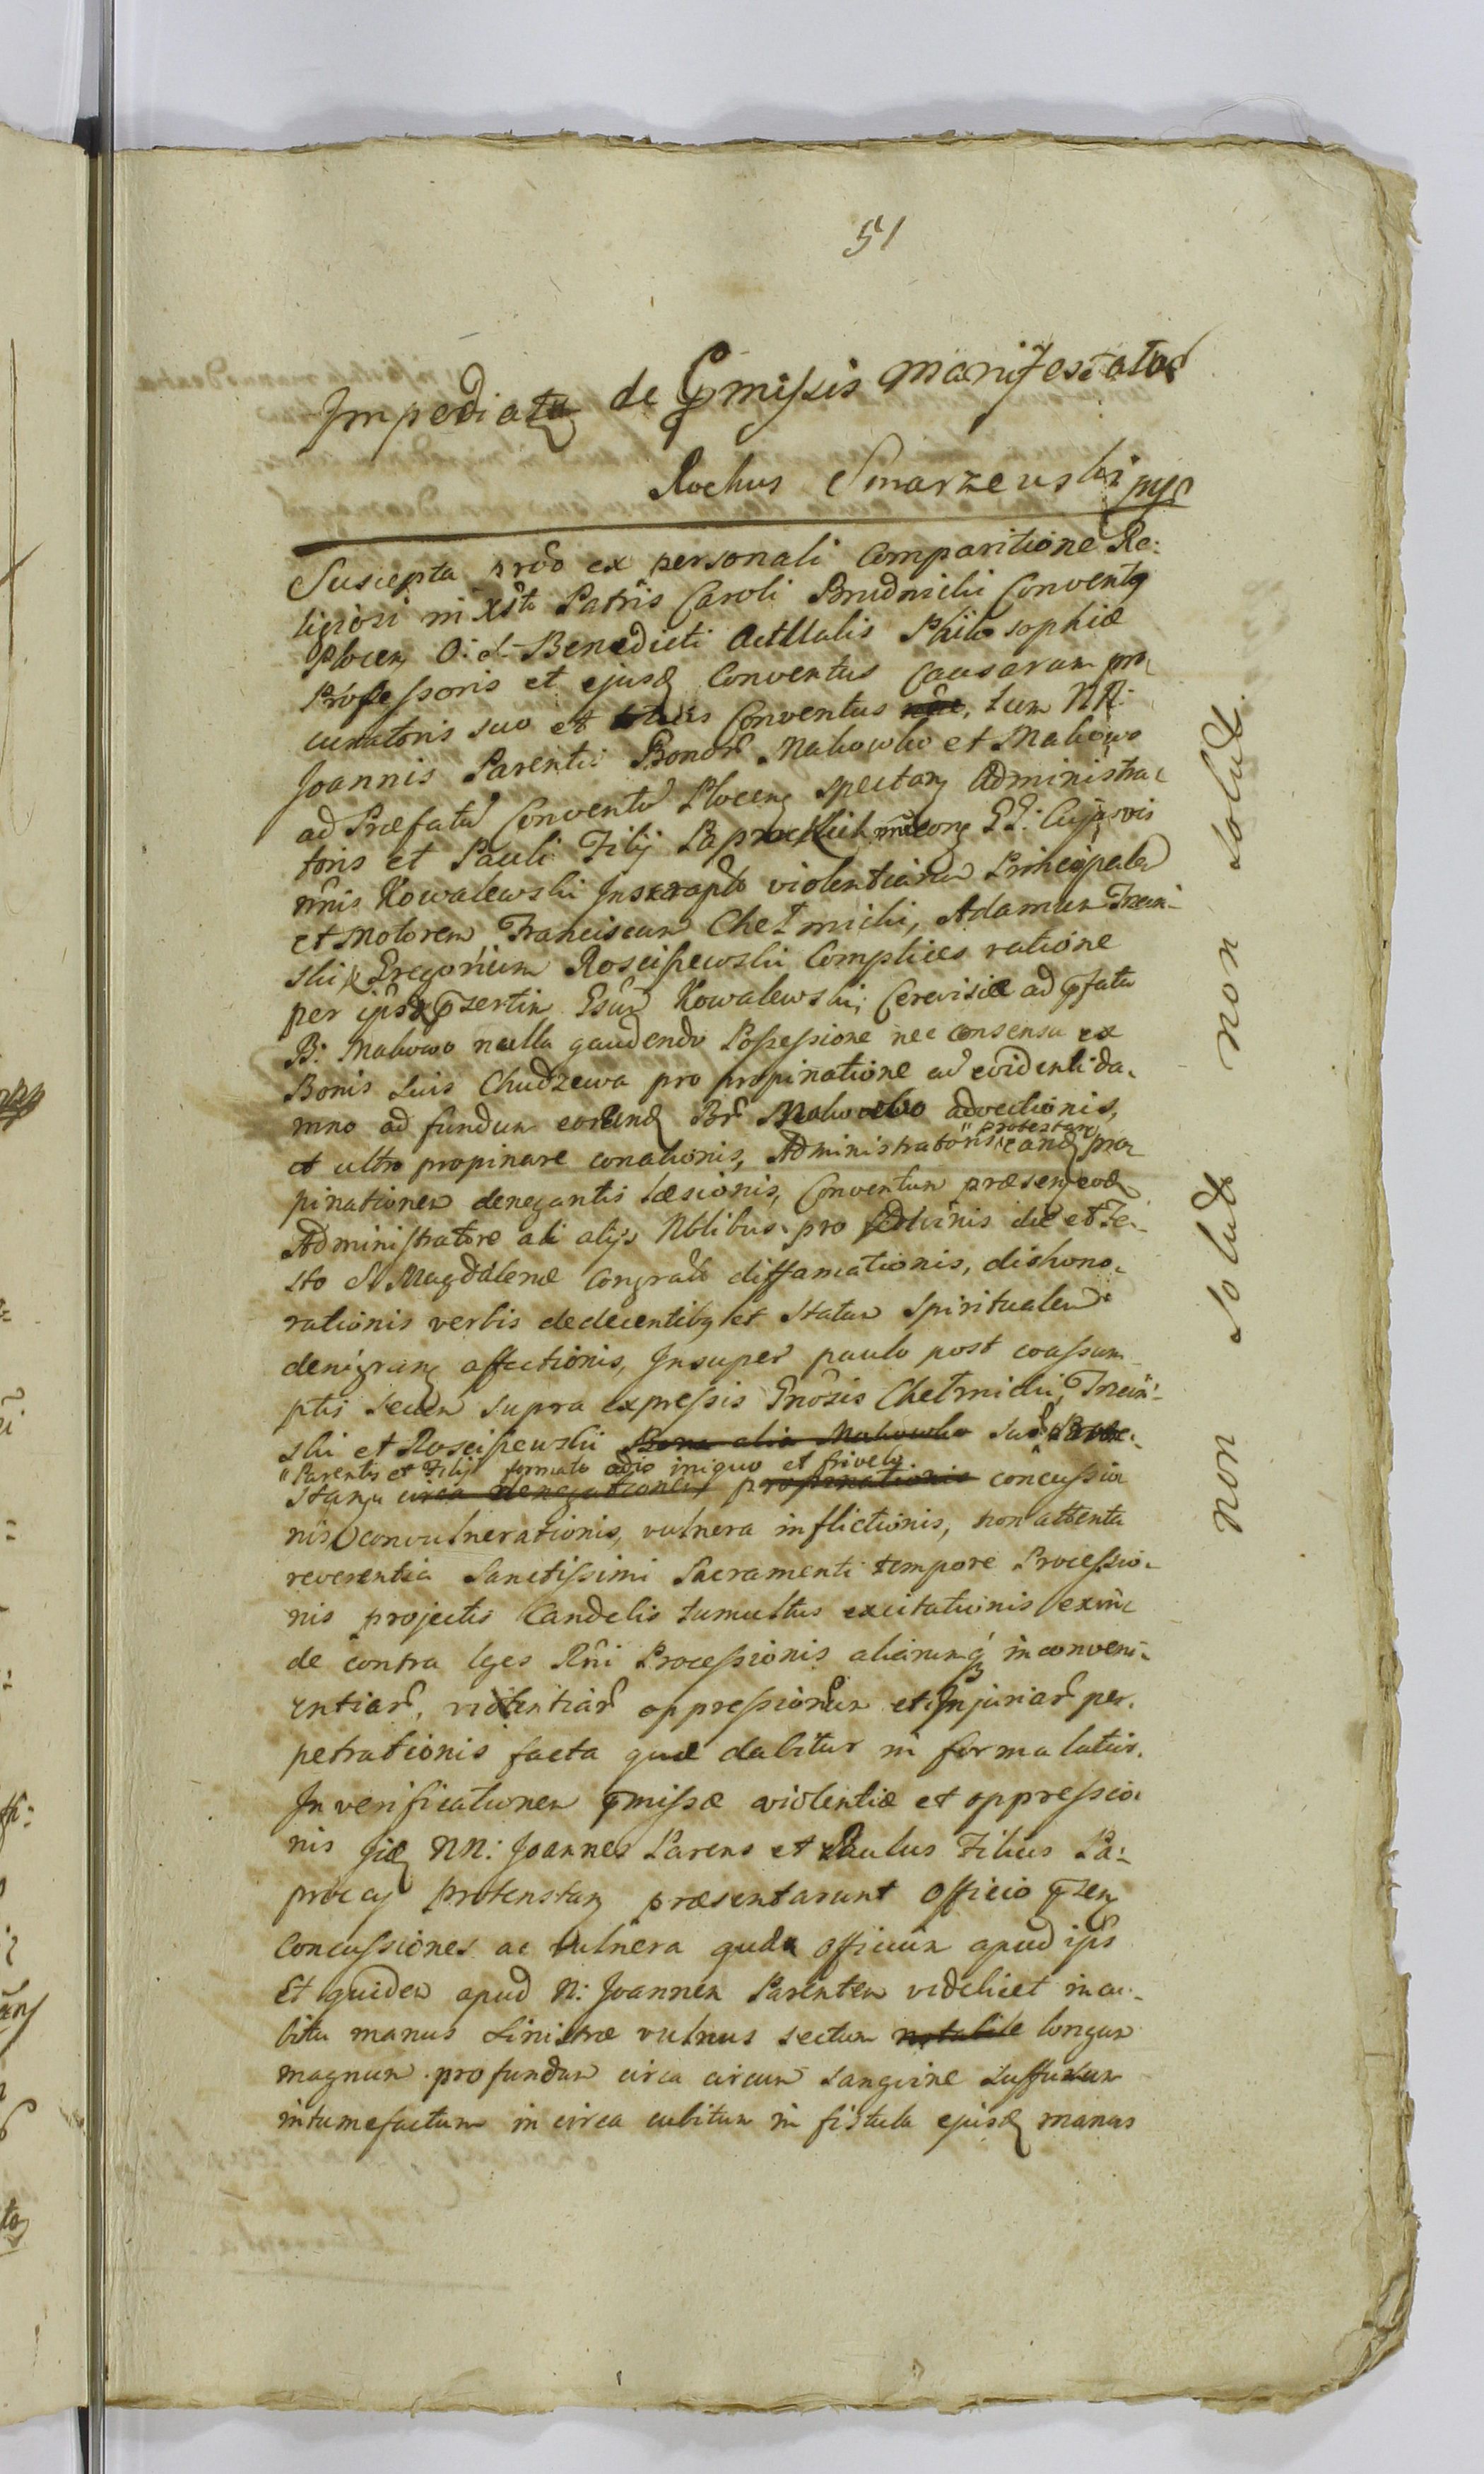 51
Impediatꝫ de p̄missis manifestatur
Rochus Smarzewski mp
Suscepta prod ex personali Comparitione Re:
ligiosi in Xsto Patris Caroli Brudnicki Conventꝫ
Plocen O: S. Benedicti Acttualis Philosophiæ
Professoris et ejusd Conventus Causarum pro
curatoris suo et totius Conventus noie, tum NN:
Joannis Parentis Bonor Makowko et Makowo
ad Præfatu Conventu Plocen spectan Administra
toris et Pauli Filij Paprockich in eons GG: Cujusvis
nnis Kowalewski Infrarapto violentiarum Principalem
et Motorem, Franciscum Chełmicki, Adamum Trzein-
ski, Gregorium Rosciszewski Complices ratione
per ipsos p̄sertim Gsum Kowalewski, Cerevisiæ ad p̄fata
B: Makowo nulla gaudendo Possessione nec consensu ex
Bonis suis Chudzewa pro propinatione ad evidenti da-
mno ad fundum eorund Br Makowko advectionis,
et ultro propinare conationis, Administratoris eand pro
protestan
pinationem denegantis læsionis, Conventum præsen eod
Administratore ali alys Nblibus pro die et Fe-
sto S Magdalenæ Congrab diffamationis, dishono-
rationis verbis dedecentibꝫ et Statum Spiritualem
denigran affectionis, Insuper paulo post coassum
ptis secum supra expressis Gnosis Chełmicki, Trzein-
ski et Rosciszewski Bona alia Makowko
"Parentis et Filij formato odio iniquo et frivolo
stan circa denegationem propinationis concussio
nis convulnerationis, vulnera inflictionis, non attenta
reverentia Sanctissimi Sacramenti tempore Processio-
nis projectis Candelis tumultus excitationis exin
de contra leges Rni Processionis aliarumqꝫ inconveni-
entiar, violentiar oppressionum et Injuriar per-
petrationis facta quæ dabitur in forma latior.
In verificationem p̄missæ violentiæ et oppressio
nis iid NN: Joannes Parens et Paulus Filius Pa:
proccy protenstan præsentarunt Officio p̄sen
Concussiones ac vulnera quda officium apud ips
Et quidem apud N: Joannem Parentem videlicet in cu-
bitu manus sinistræ vulnus sectum notabile longum
magnum profundum circa circum sangvine suffusum
intumefactum in circa cubitum in fistula ejusd manus
non solut non solut